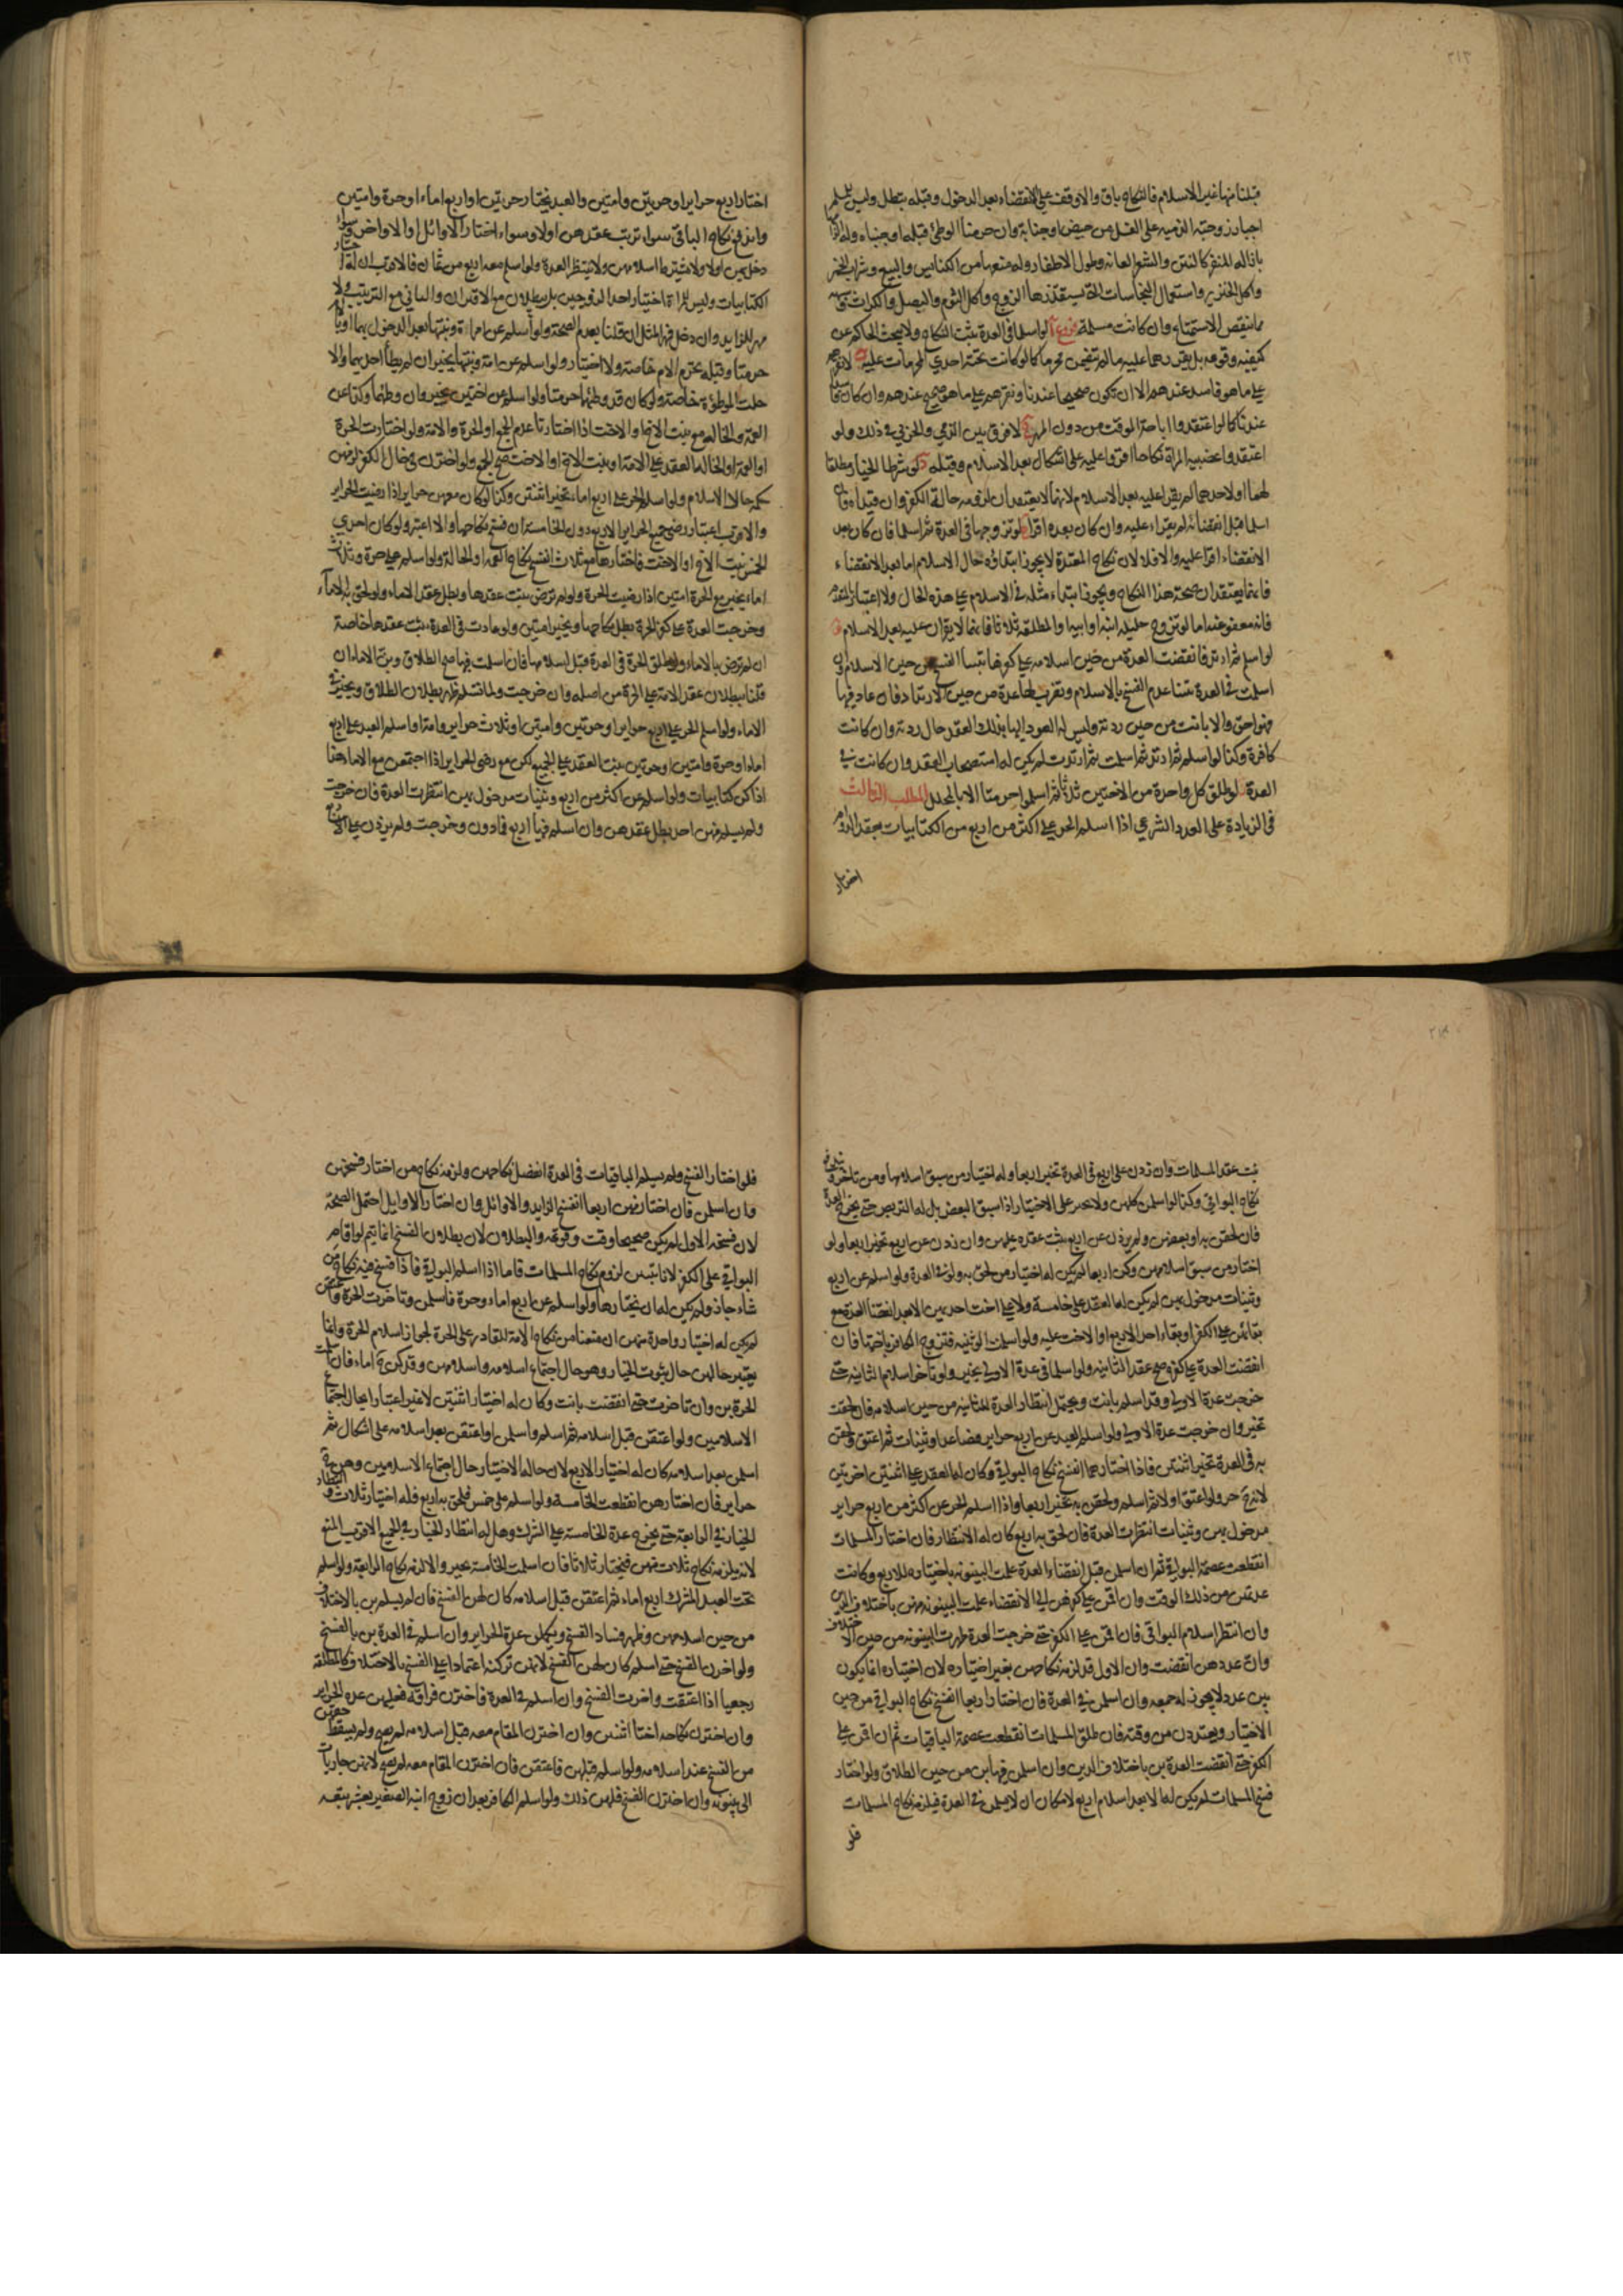 ٢١٣
قبلنا منها غير الاسلام فالنكاح باق والا وقف على الانقضاء بعد الدخول وقبله يبطل وليس للمسلم
اجبار زوجته الذمية على الغسل من حيض او جنابة وان حرمنا الوطئ قبله او جنباه وله
بازالة المنفر كالنتن والشعر العانة وطول الاظفار وله منعها من الكنايس والبيع وشراب الخمر
واكل الخنزير واستعمال النجاسات التي يستقذرها الزوج واكل الثوم والبصل والكراث
مما ينقص الاستمتاع وان كانت مسلمة فروع آ لو اسلما في العدة يثبت النكاح ولا يبحث الحاكم عن
كيفية وقوعه بل يقررهما عليه ما لم تتضمن محرما كما لو كانت تحته احدى المحرمات عليه ب لا نقرهم
على ما هو فاسد عندهم الا ان يكون صحيحا عندنا ونقرهم على ما هو صحيح عندهم وان كان فاسدا
عندنا كما لو اعتقدوا اباحة الموقت من دون المهر ج لا فرق بين الذمي والحربي في ذلك ولو
اعتقدوا غصبية المراة نكاحا اقروا عليه على اشكال بعد الاسلام وقبله د لو شرطا الخيار مطلقا
لهما او لاحدهما لم يقرا عليه بعد الاسلام لانهما لا يعتقدان لزومه حالة الكفر وان قيداه فان
اسلما قبل انقضائه لم يقرا عليه وان كان بعده اقرا ه لو تزوجها في العدة ثم اسلما فان كان بعد
الانقضاء اقرا عليه والا فلا لان نكاح المعتدة لا يجوز ابتداؤه حال الاسلام اما بعد الانقضاء
فانهما يعتقدان صحة هذا النكاح ويجوز ابتداء مثله في الاسلام على هذه الحال ولا اعتبار بالمتقدم
فانه معفو عنه اما لو تزوج حليلة ابنه او ابيه او المطلقة ثلاثا فانهما لا يقران عليه بعد الاسلام و
لو اسلم ثم ارتد فانقضت العدة من حين اسلامه على كفرها تبينا الفسخ من حين الاسلام وان
اسلمت في العدة تبينا عدم الفسخ بالاسلام وتضرب لها عدة من حين الارتداد فان عاد فيها
فهو احق والا بانت من حين ردته وليس له العود اليها بذلك العقد حال ردته وان كانت
كافرة وكذا لو اسلم ثم ارتد ثم اسلمت ثم ارتدت لم يكن له استصحاب العقد وان كانت في
العدة ز لو طلق كل واحدة من الاختين ثلاثا ثم اسلموا حرمتا الا بالمحلل المطلب الثالث
في الزيادة على العدد الشرعي اذا اسلم الحر على اكثر من اربع من الكتابيات بعقد الدوام
اختار
اختار اربع حراير او حرتين وامتين والعبد يختار حرتين او اربع اماء او حرة وامتين
واندفع نكاح الباقي سواء ترتب عقدهن او لا وسواء اختار الاوائل او الاواخر وسواء
دخل بهن او لا ولا يشترط اسلامهن ولا ينتظر العدة ولو اسلم معه اربع من ثمان فالاقرب ان له اختيار
الكتابيات وليس للمراة اختيار احد الزوجين بل يبطلان مع الاقتران والثاني مع الترتيب ولا
مهر للزايد وان دخل فمهر المثل ان قلنا بعدم الصحة ولو اسلم عن امراة وبنتها بعد الدخول بهما او باحدهما
حرمتا وقبله يحرم الام خاصة ولا اختيار ولو اسلم عن امة وبنتها يخير ان لم يطأ احديهما والا
حلت الموطؤة خاصة ولو كان قد وطئهما حرمتا ولو اسلم عن اختين يخير وان وطئهما وكذا عن
العمة والخالة مع بنت الاخ او الاخت اذا اختارتا عدم الجمع او الحرة والامة ولو اختارت الحرة
او العمة او الخالة العقد على الامة او بنت الاخ او الاخت صح الجمع ولو اخترن في حال الكفر لزمهن
حكمه حالة الاسلام ولو اسلم الحر على اربع اماء تخير اثنتين وكذا لو كان معهن حراير اذا رضيت الحراير
والاقرب اعتبار رضى جميع الحراير الاربع دون الخامسة ان فسخ نكاحها والا اعتبر ولو كان احدى
الخمس بنت الاخ او الاخت فاختارها مع ثلاث انفسخ نكاح العمة او الخالة ولو اسلم على حرة وثلاث
اماء يخير مع الحرة امتين اذا رضيت الحرة ولو لم ترض ثبت عقدها وبطل عقد الاماء ولو لحق به الاماء
وخرجت العدة على كفر الحرة بطل نكاحها ويخير امتين ولو عادت في العدة ثبت عقدها خاصة
ان لم ترض بالاماء ولو طلق الحرة في العدة قبل اسلامها فان اسلمت فيها صح الطلاق وبن الاماء ان
قلنا ببطلان عقد الامة على الحرة من اصله وان خرجت ولما تسلم ظهر بطلان الطلاق ويخير
الاماء ولو اسلم الحر على اربع حراير او حرتين وامتين او ثلاث حراير وامة او اسلم العبد على اربع
اماء او حرة وامتين او حرتين ثبت العقد على الجميع لكن مع رضى الحراير اذا اجتمعن مع الاماء هذا
اذا كن كتابيات ولو اسلم عن اكثر من اربع وثنيات مدخول بهن انتظرت العدة فان خرجت
ولم يسلم منهن احد بطل عقدهن وان اسلم فيها اربع فما دون وخرجت ولم يزدن على الاربع
٢١٤
ثبت عقد المسلمات وان زدن على اربع في العدة تخير اربعا وله اختيار من سبق اسلامها ومن تاخر
نكاح البواقي وكذا لو اسلمن كلهن ولا يجبر على الاختيار اذا سبق البعض بل له التربص حتى يخرج العدة
فان لحقن به او بعضهن ولم يزدن عن اربع ثبت عقده عليهن وان زدن عن اربع تخير اربعا ولو
اختار من سبق اسلامهن وكن اربعا لم يكن له اختيار من لحق به ولو في العدة ولو اسلم عن اربع
وثنيات مدخول بهن لم يكن له العقد على خامسة ولا على اخت احديهن الا بعد انقضاء العدة مع
بقائهن على الكفر او بقاء احد الاربع او الاخت عليه ولو اسلمت الوثنية فتزوج الكافر باختها فان
انقضت العدة على كفره صح عقد الثانية ولو اسلما في عدة الاولى يخير ولو تاخر اسلام الثانية حتى
خرجت عدة الاولى وقد اسلم بانت ويحتمل انتظار العدة للثانية من حين اسلامه فان لحقت
تخير وان خرجت عدة الاولى ولو اسلم العبد عن اربع حراير فصاعدا وثنيات ثم اعتق ولحقن
به في العدة تخير اثنتين فاذا اختارهما انفسخ نكاح البواقي وكان له العقد على اثنتين اخرتين
لانه ح حر ولو اعتق اولا ثم اسلم ولحقن به تخير اربعا واذا اسلم الحر عن اكثر من اربع حراير
مدخول بهن وثنيات انتظرت العدة فان لحق به اربع كان له الانتظار فان اختار المسلمات
انقطعت عصمة البواقي ثم ان اسلمن قبل انقضاء العدة علمت البينونة باختياره للاربع وكانت
عدتهن من ذلك الوقت وان اقمن على كفرهن الى الانقضاء علمت البينونة منهن باختلاف الدين
وان انتظر اسلام البواقي فان اقمن على الكفر حتى خرجت العدة ظهرت البينونة من حين الاختلاف
وان عددهن انقضت وان الاول قد لزمه نكاحهن بغير اختياره لان اختياره انما يكون
بين عدد لا يجوز له جمعه وان اسلمن في العدة فان اختار اربعا انفسخ نكاح البواقي من حين
الاختيار ويعتددن من وقته فان طلق المسلمات انقطعت عصمة الباقيات ثم ان اقمن على
الكفر حتى انقضت العدة بن باختلاف الدين وان اسلمن فيها بن من حين الطلاق ولو اختار
فسخ المسلمات لم يكن له الا بعد اسلام اربع لامكان ان لا يسلمن في العدة فيلزمه نكاح المسلمات
فلو
فلو اختار الفسخ ولم يسلم الباقيات في العدة انفصل نكاحهن ولزمه نكاح من اختار فسخهن
وان اسلمن فان اختار منهن اربعا انفسخ الزايد والاوائل وان اختار الاوايل احتمل الصحة
لان فسخه الاول لم يكن صحيحا وقت وقوعه والبطلان لان بطلان الفسخ انما يتم لو اقام
البواقي على الكفر لانا تبينا لزوم نكاح المسلمات فاما اذا اسلم البواقي فاذا فسخ فيه نكاح من
شاء جاز ولم يكن له ان يختارها ولو اسلم عن اربع اماء وحرة فاسلمن وتاخرت الحرة واعتقن
لم يكن له اختيار واحدة منهن ان منعنا من نكاح الامة للقادر على الحرة لجواز اسلام الحرة وانما
يعتبر حالهن حال ثبوت الخيار وهو حال اجتماع اسلامه واسلامهن وقد كن ح اماء فان اسلمت
الحرة بن وان تاخرت حتى انقضت بانت وكان له اختيار اثنتين لا غير اعتبارا بحال اجتماع
الاسلامين ولو اعتقن قبل اسلامه ثم اسلم واسلمن او اعتقن بعد اسلامه على اشكال ثم
اسلمن بعد اسلامه كان له اختيار الاربع لان حالة الاختيار حال اجتماع الاسلامين وهن ح
حراير فان اختارهن انقطعت الخامسة ولو اسلم على خمس فلحق به اربع فله اختيار ثلاث وانتظار
الخيار في الرابعة حتى يخرج عدة الخامسة على الشرك وهل له انتظار الخيار في الجميع الاقرب المنع
لانه يلزمه نكاح ثلاث منهن فيختار ثلاثا فان اسلمت الخامسة تخير والا لزمه نكاح الرابعة ولو اسلم
تحت العبد المشرك اربع اماء ثم اعتقن قبل اسلامه كان لهن الفسخ فان لم يسلم بن بالاختلاف
من حين اسلامهن وظهر فساد الفسخ ويكملن عدة الحراير وان اسلم في العدة بن بالفسخ
ولو اخرن الفسخ حتى اسلم كان لهن الفسخ لانهن تركنه اعتمادا على الفسخ بالاختلاف كالمطلقة
رجعيا اذا اعتقت واخرت الفسخ وان اسلم في العدة فاخترن فراقه فعليهن عدة الحراير
وان اخترن نكاحه اختار اثنتين وان اخترن المقام معه قبل اسلامه لم يصح ولم يسقط حقهن
من الفسخ عند اسلامه ولو اسلم قبلهن فاعتقن فان اخترن المقام معه لم يصح لانهن جاريات
الى بينونة وان اخترن الفسخ فلهن ذلك ولو اسلم الكافر بعد ان زوج ابنه الصغير بعشر تبعه